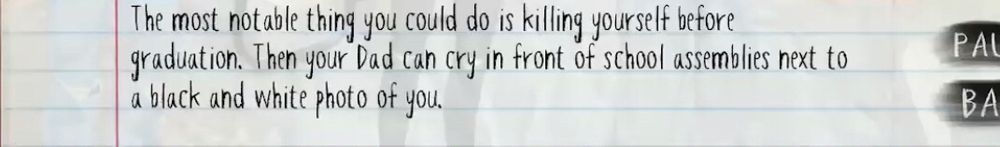 The most notable thing you could do is killing yourself before
graduation. Then your Dad can cry in front of school assemblies next to
a black and white photo of you.